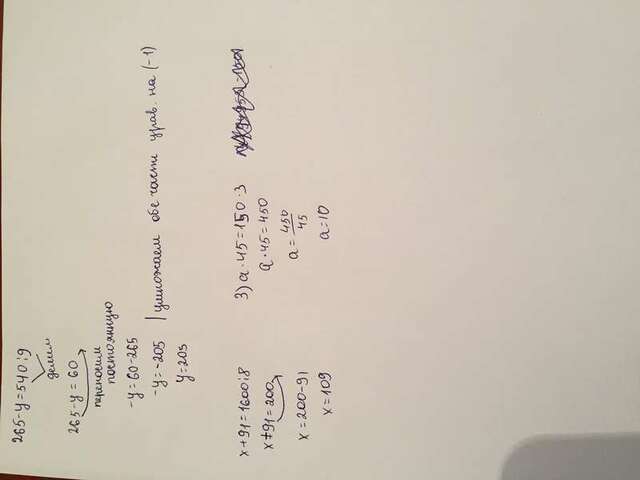 265-y=540:9
делим
265-y=60
переносим
постоянную
-y=60-265
-y=-205 | умножаем обе части урав. на (-1)
y=205
x+91=1600:8
x+91=200
x=200-91
x=109
3) a·45=150·3
a·45=450
a=450/45
a=10